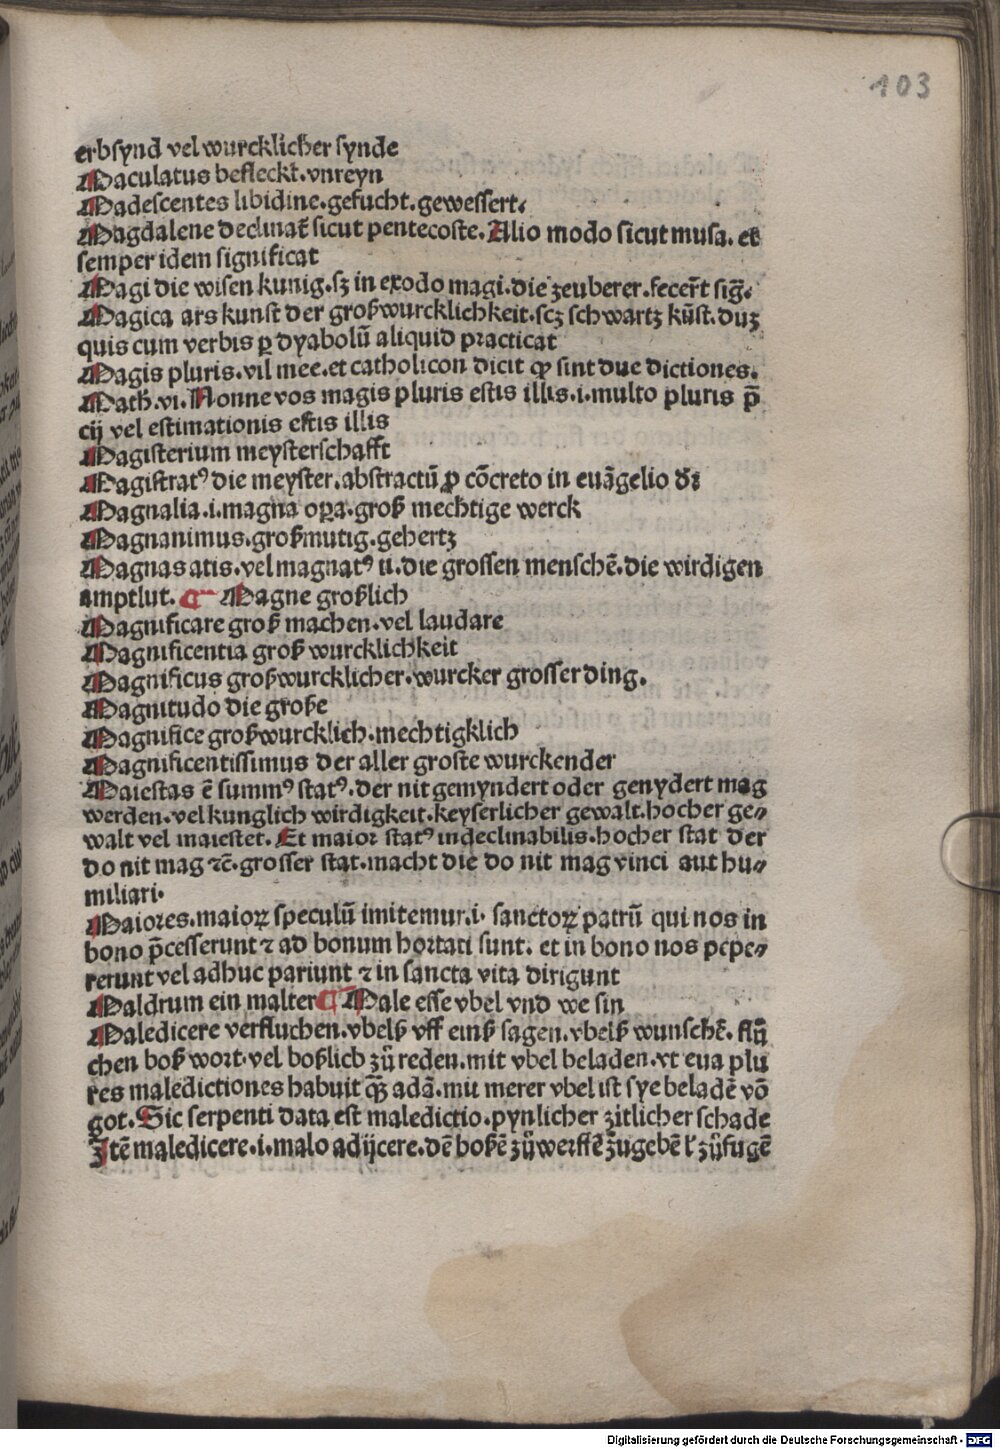 103
erbsynd vel wurcklicher synde
Maculatus befleckt. vnreyn
Madescentes libidine. gefucht. gewessert.
Magdalene declinat̃ sicut pentecoste. Alio modo sicut musa. et
semper idem significat
Magi die wisen kunig. sꝫ in exodo magi. die zeuberer. fecer̃t sig̃.
Magica ars kunst der großwurcklichkeit. scꝫ schwartz kūst. duꝫ
quis cum verbis ꝑ dyabolū aliquid practicat
Magis pluris. vil mee. et catholicon dicit ꝙ sint due dictiones.
Math̃. vi. Nonne vos magis pluris estis illis. i. multo pluris p̄
cij vel estimationis estis illis
Magisterium meysterschafft
Magistratꝰ die meyster. abstractū ꝓ cōcreto in euāgelio dꝛ̄
Magnalia. i. magna oꝑa. groß mechtige werck
Magnanimus. großmutig. gehertz
Magnas atis. vel magnatꝰ ti. die grossen menschē. die wirdigen
amptlut. ¶ Magne großlich
Magnificare groß machen. vel laudare
Magnificentia groß wurcklichkeit
Magnificus großwurcklicher. wurcker grosser ding.
Magnitudo die große
Magnifice großwurcklich. mechtigklich
Magnificentissimus der aller groste wurckender
Maiestas ē summꝰ statꝰ. der nit gemyndert oder genydert mag
werden. vel kunglich wirdigkeit. keyserlicher gewalt. hocher ge⸗
walt vel maiestet. Et maior statꝰ indeclinabilis. hocher stat der
do nit mag ⁊c̄. grosser stat. macht die do nit mag vinci aut hu⸗
miliari.
Maiores. maioꝝ speculū imitemur. i. sanctoꝝ patrū qui nos in
bono p̄cesserunt ⁊ ad bonum hortati sunt. et in bono nos pepe⸗
rerunt vel adhuc pariunt ⁊ in sancta vita dirigunt
Maldrum ein malter ¶ Male esse vbel vnd we sin
Maledicere verfluchen. vbelß vff einß sagen. vbelß wunschē. flů
chen boß wort. vel boßlich zů reden. mit vbel beladen. vt eua plu
res maledictiones habuit ꝙ̄ꝫ adā. mit merer vbel ist sye beladē vō
got. Sic serpenti data est maledictio. pynlicher zitlicher schade
Itē maledicere. i. malo adijcere. dē boßē zůwerffē zugebē ł zůfugē
Digitalisierung gefördert durch die Deutsche Forschungsgemeinschaft - DFG